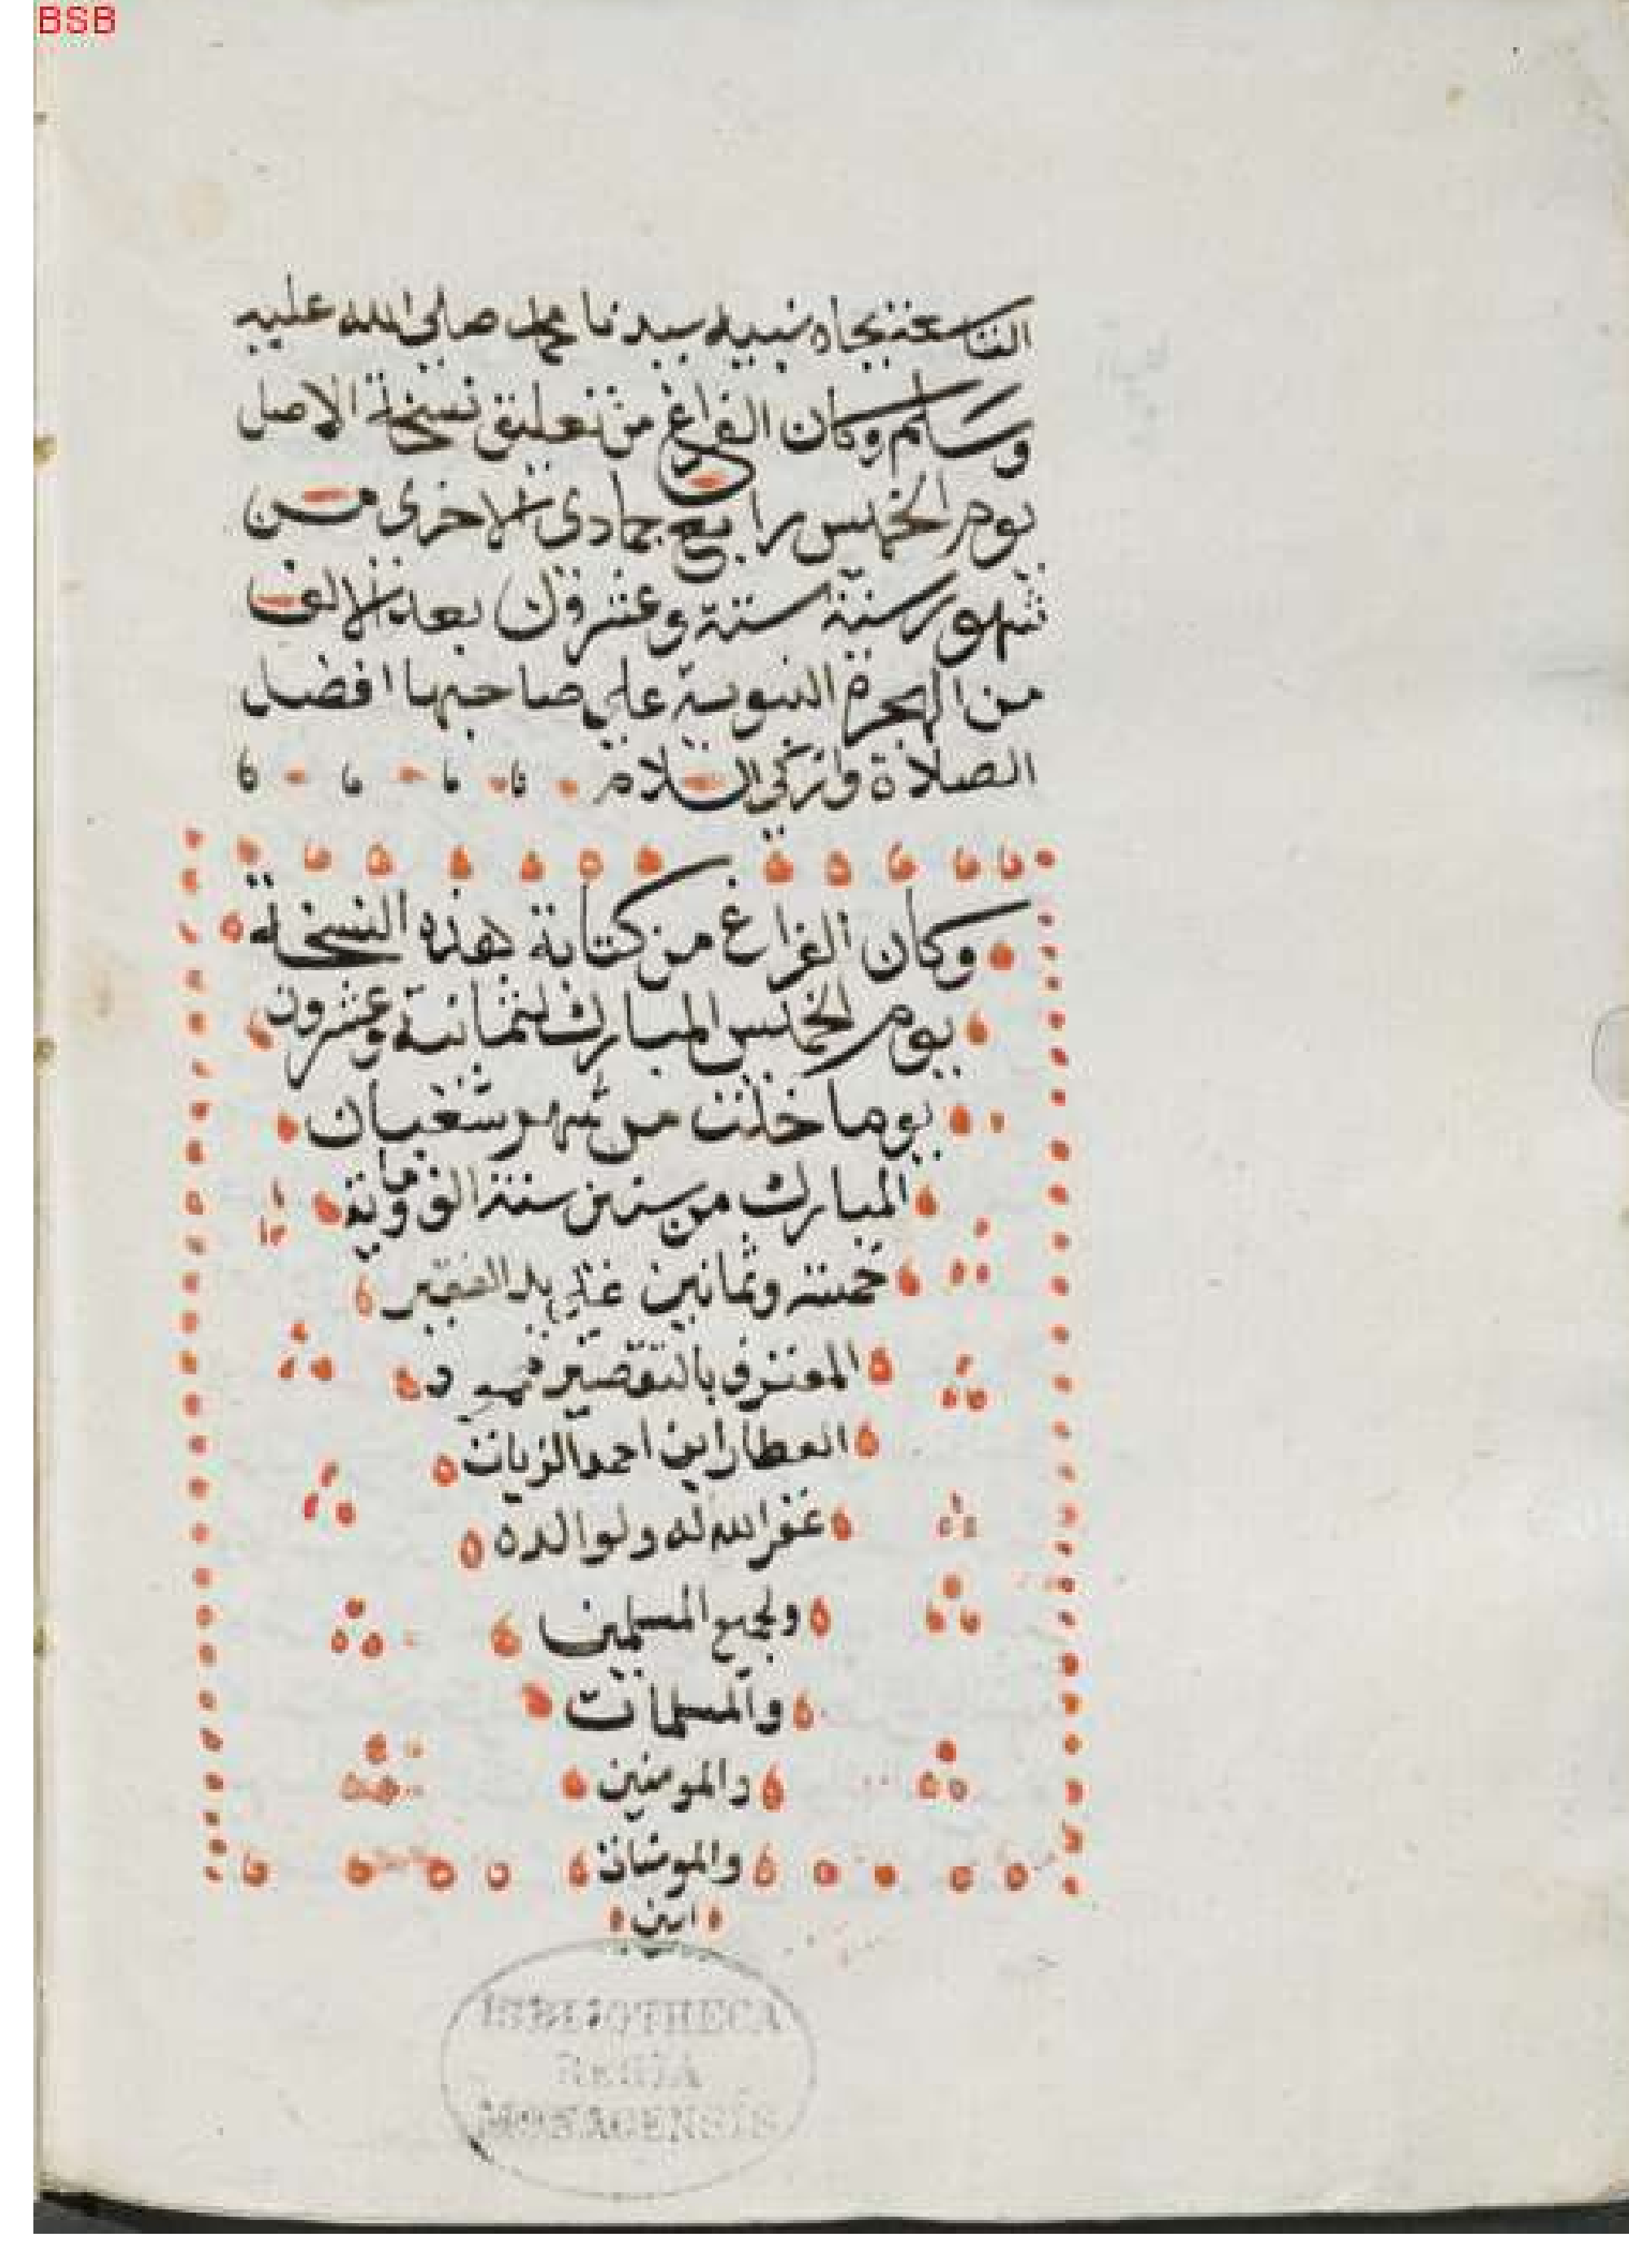 BSB
بجاه نبيه سيدنا محمد صلى الله عليه
وسلم وكان الفراغ من تعليق نسخة الاصل
يوم الخميس رابع جمادى الاخرى من
شهور سنة ستة وعشرون بعد الالف
من الهجرة النبوية على صاحبها افضل
الصلاة وازكى السلام
وكان الفراغ من كتابة هذه النسخة
يوم الخميس المبارك لثمانية وعشرون
يوما خلت من شهر شعبان
المبارك من سنين سنة الف وماية
خمسة وثمانين على يد الفقير
المعترف بالتقصير
العطار ابن احمد الزيات
غفر الله له ولوالده
ولجميع المسلمين
والمسلمات
والمومنين
والمومنات
امين
BIBLIOTHECA
REGIA
MONACENSIS